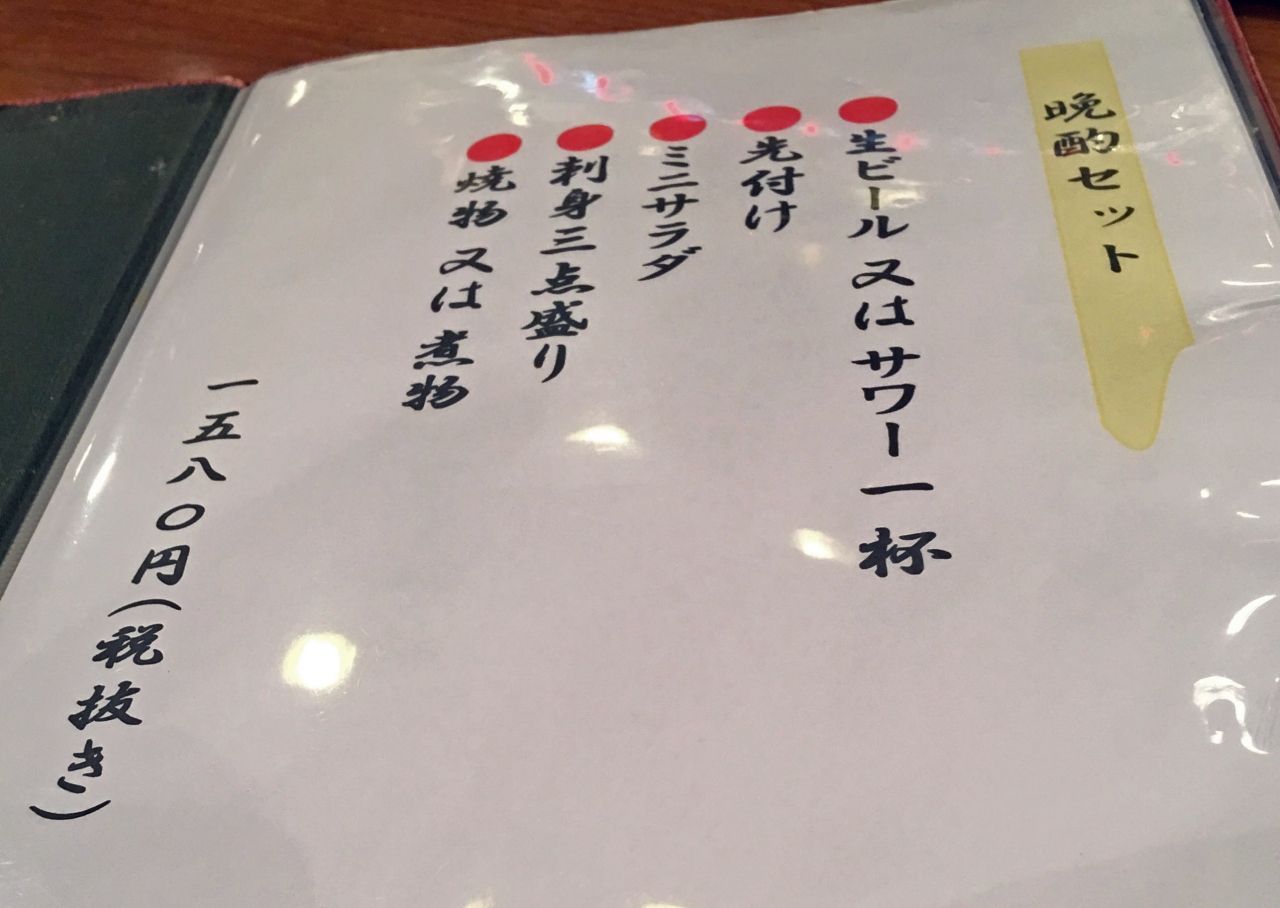 晩酌セット
●生ビール 又は サワー 一杯
●先付け
●ミニサラダ
●刺身三点盛り
●焼物 又は 煮物
一五八〇円(税抜き)